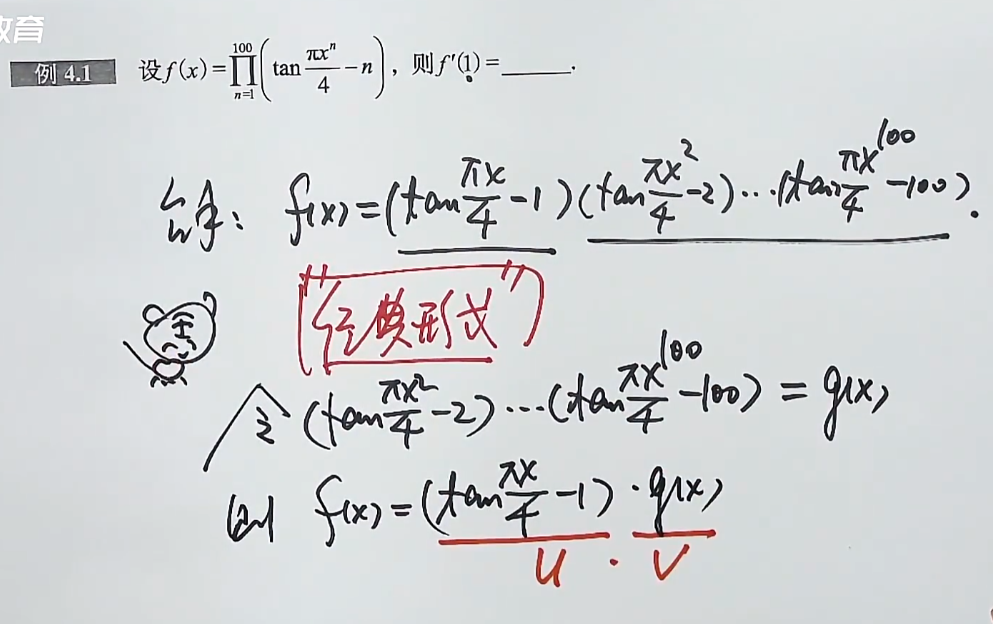 教育
例 4.1 设f(x)=∏_{n=1}^{100}(tan πx^n/4 - n), 则f'(1)=______.
解: f(x)=(tan πx/4 -1)(tan πx²/4 -2)···(tan πx^100/4 -100).
"经典形式"
令 (tan πx²/4 -2)···(tan πx^100/4 -100) = g(x)
则 f(x)=(tan πx/4 -1)·g(x)
u · v